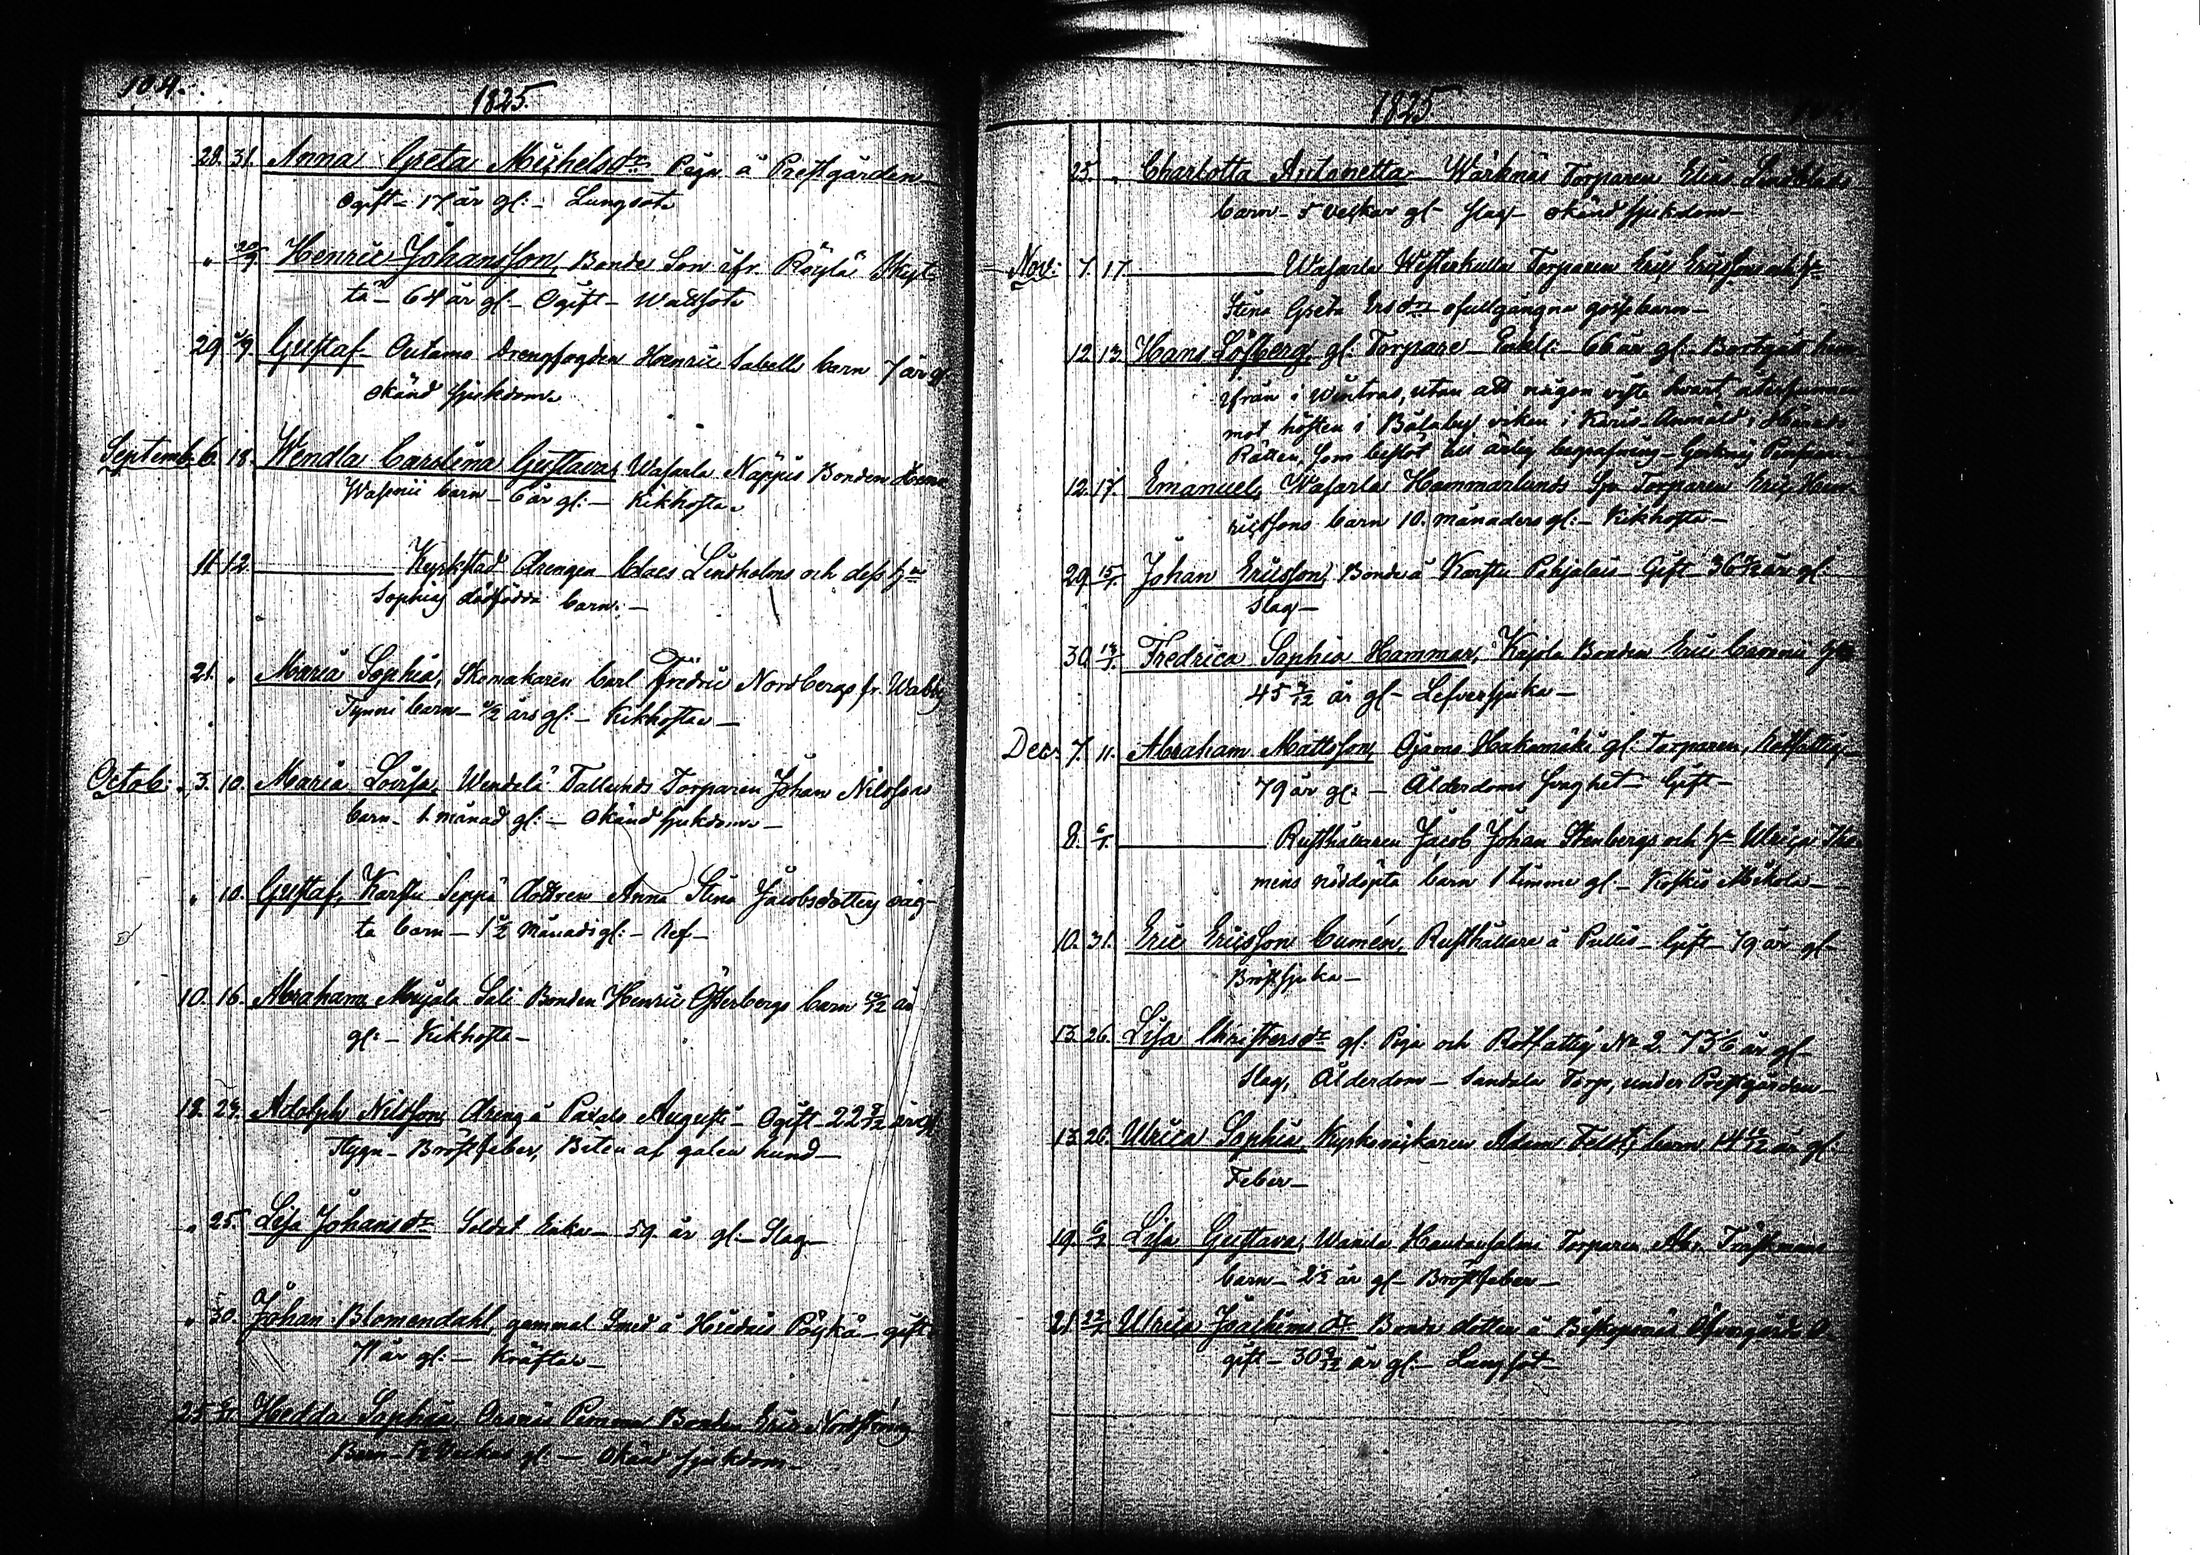 104.
1825.
28. 31. Anna Greta Michelsdr. Piga å Prestgården
Ogift – 17 år gl: – Lungsot
" 20/9. Henric Johansson, Bonde Son ifr.
ta – 64 år gl – Ogift – Wattsot
29 4/9. Gustaf – Outamo Drengfogden Henric Sabells barn 7 år gl.
okänd sjukdom
Septemb. 6. 18. Wendla Carolina Gustava, Wasarla Näppis Bonden
barn – 6 år gl: – Kikhosta
11. 12. Kyrkstad Drengen Claes Lindholms och dess h:u
Sophias dödfödda barn. –
21. " Maria Sophia, Skomakaren Carl Fredric Nordbergs fr. Wabby
Tynni barn – 1/2 års gl: – Kikhosta –
Octob: 3. 10. Maria Lovisa, Wendelä Tallunds Torparen Johan Nilssons
barn – 1 månad gl: – Okänd sjukdom –
" 10. Gustaf, Karstu Seppä dottren Anna Stina Jacobsdotters oäg-
ta barn – 1 1/2 månads gl: – Ref –
10. 16. Abraham, Maijala Sali Bonden Henric Österbergs barn 10/12 år
gl: – Kikhosta –
18. 24. Adolph Nilsson, Dreng å Paxalo Augusti – Ogift – 22 8/12 år gl
Stygn – Bröstfeber, Biten af galen hund –
" 25. Lisa Johansdr. Soldat Enka – 59 år gl: – Slag –
" 30. Johan Blomendahl, gammal Smed å Hiidis Pöykä – gift
71 år gl: – Kräfta –
25. Hedda Sophia Bonden Eric Nordströms
Barn – Veckor gl: – Okänd sjukdom –
1825
25. " Charlotta Antonetta – Wärknäs Torparen Elias Lindblads
barn – 5 veckor gl – Slag – okänd sjukdom –
Nov: 7. 17. Wasarla Westerkulla Torparen Eric Ericssons och h:u
Stina Greta Ersdrs ofullgångna gossebarn –
12. 13. Hans Löfberg, gl: Torpare – Enkl: – 66 år gl – Bortgått hem-
ifrån i wintras, utan att någon wiste hvart, återfunnen
mot hösten i Bålaby viken i Karis – Anmäld i Härads
Rätten, som beslöt til ärlig begrafning –
12. 17. Emanuel, Wasarla Hammarlunds Torparen Eric Hen-
ricssons barn 10. månaders gl: – Kikhosta –
29 Johan Ericsson, Bonde å Karstu Pohjolais – Gift – 36 år gl
Slag –
30. Fredrica Sophia Hammar, Kajola Bonden Eric h:u
45 7/12 år gl – Lefversjuka –
Dec: 7. 11. Abraham Mattsson, Ojamo Hakamäki gl: Torparen, Rotfattig –
79 år gl: – Ålderdoms svaghet – Gift –
8. 6/1. Rusthållaren Jacob Johan Stenbergs och h:u Ulrica
mens nöddöpta barn 1 timme gl – Koskis Mikola –
10. 31. Eric Ericsson Cumén, Rusthållare å Pullis – Gift – 79 år gl –
Bröstsjuka –
13. 26. Lisa Christersdr. gl: Piga och Rotfattig No 2. 73 år gl –
Slag, Ålderdom – Sandala Torp, under Prestgården –
13. 26. Ulrica Sophia, Kyrkowäktaren Adam barn 14 år gl:
Feber –
19. Lisa Gustava, Torparen Abr. Träskmans
barn – 2 1/2 år gl – Bröstfeber –
21. Ulrica Joachimsdr. Bonde dotter å Biskopsnäs O-
gift – 30 9/12 år gl: – Lungsot –